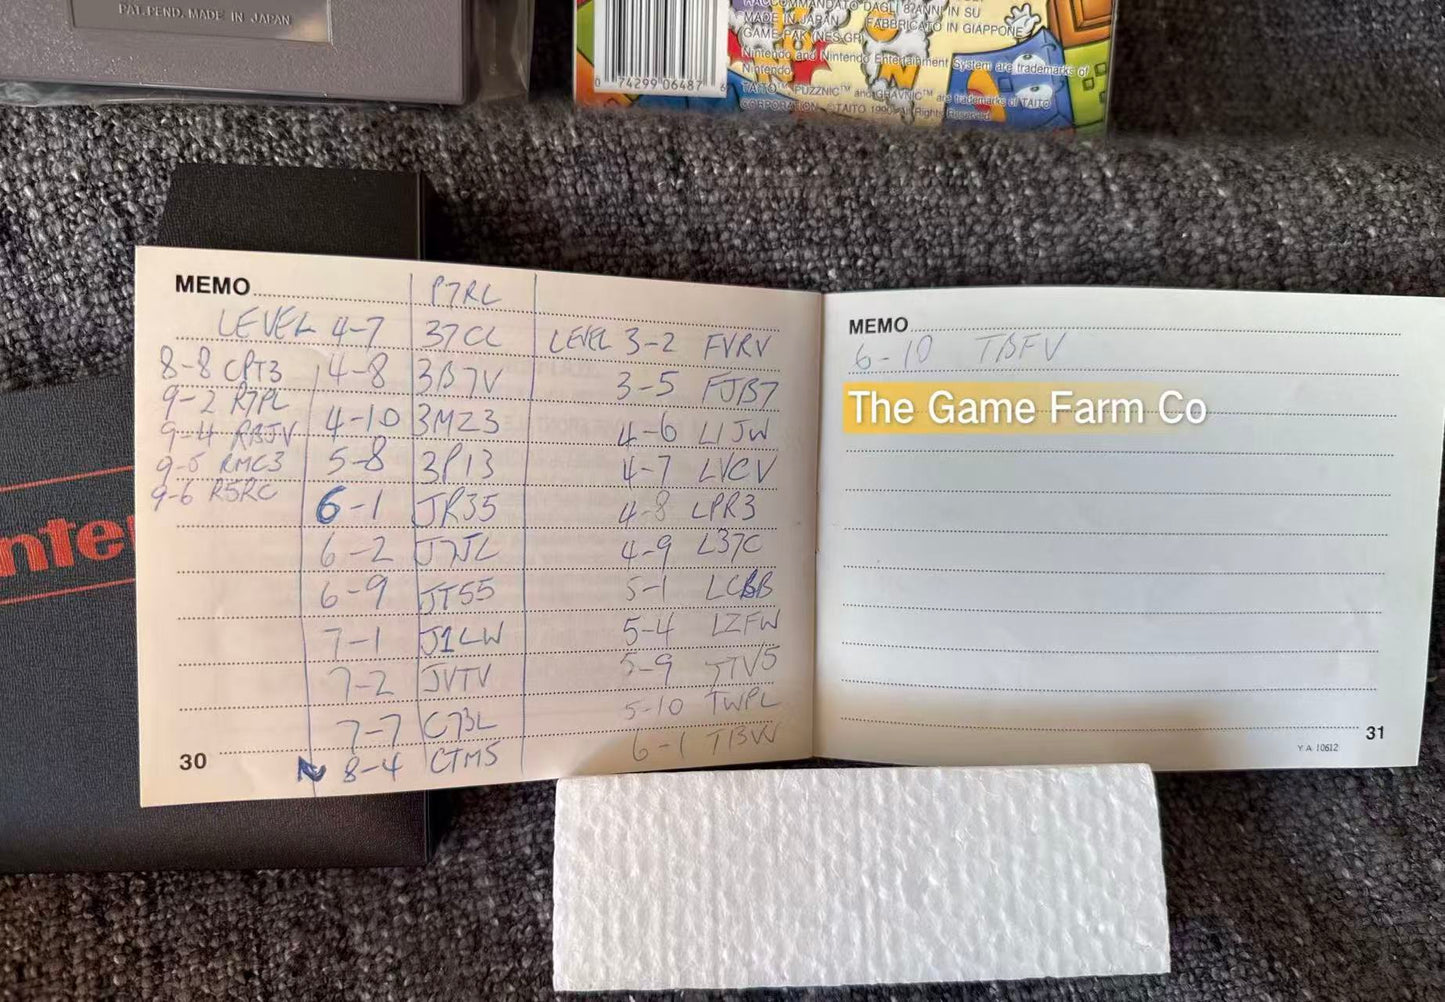 PAT. PEND. MADE IN JAPAN
RACCOMMANDATO DAGLI 8 ANNI IN SU
MADE IN JAPAN FABBRICATO IN GIAPPONE
GAME PAK (NES-GR)
Nintendo and Nintendo Entertainment System are trademarks of
Nintendo.
TAITO™, PUZZNIC™ and GRAVNIC™ are trademarks of TAITO
CORPORATION. ©TAITO 1990. All Rights Reserved.
0 74299 06487 6
MEMO
P7RL
LEVEL 4-7 37CL
8-8 CPT3
4-8 3B7V
9-2 R7PL
4-10 3MZ3
9-4 RBJV
5-8 3P13
9-5 RMC3
9-6 R5RC
6-1 JR35
6-2 J7JL
6-9 JT55
7-1 J1LW
7-2 JVTV
7-7 C73L
8-4 CTM5
LEVEL 3-2 FVRV
3-5 FJB7
4-6 L1JW
4-7 LVCV
4-8 LPR3
4-9 L37C
5-1 LCBB
5-4 LZFW
5-9 JTV5
5-10 TWPL
6-1 T13W
30
MEMO
6-10 TBFV
The Game Farm Co
31
YA 10612